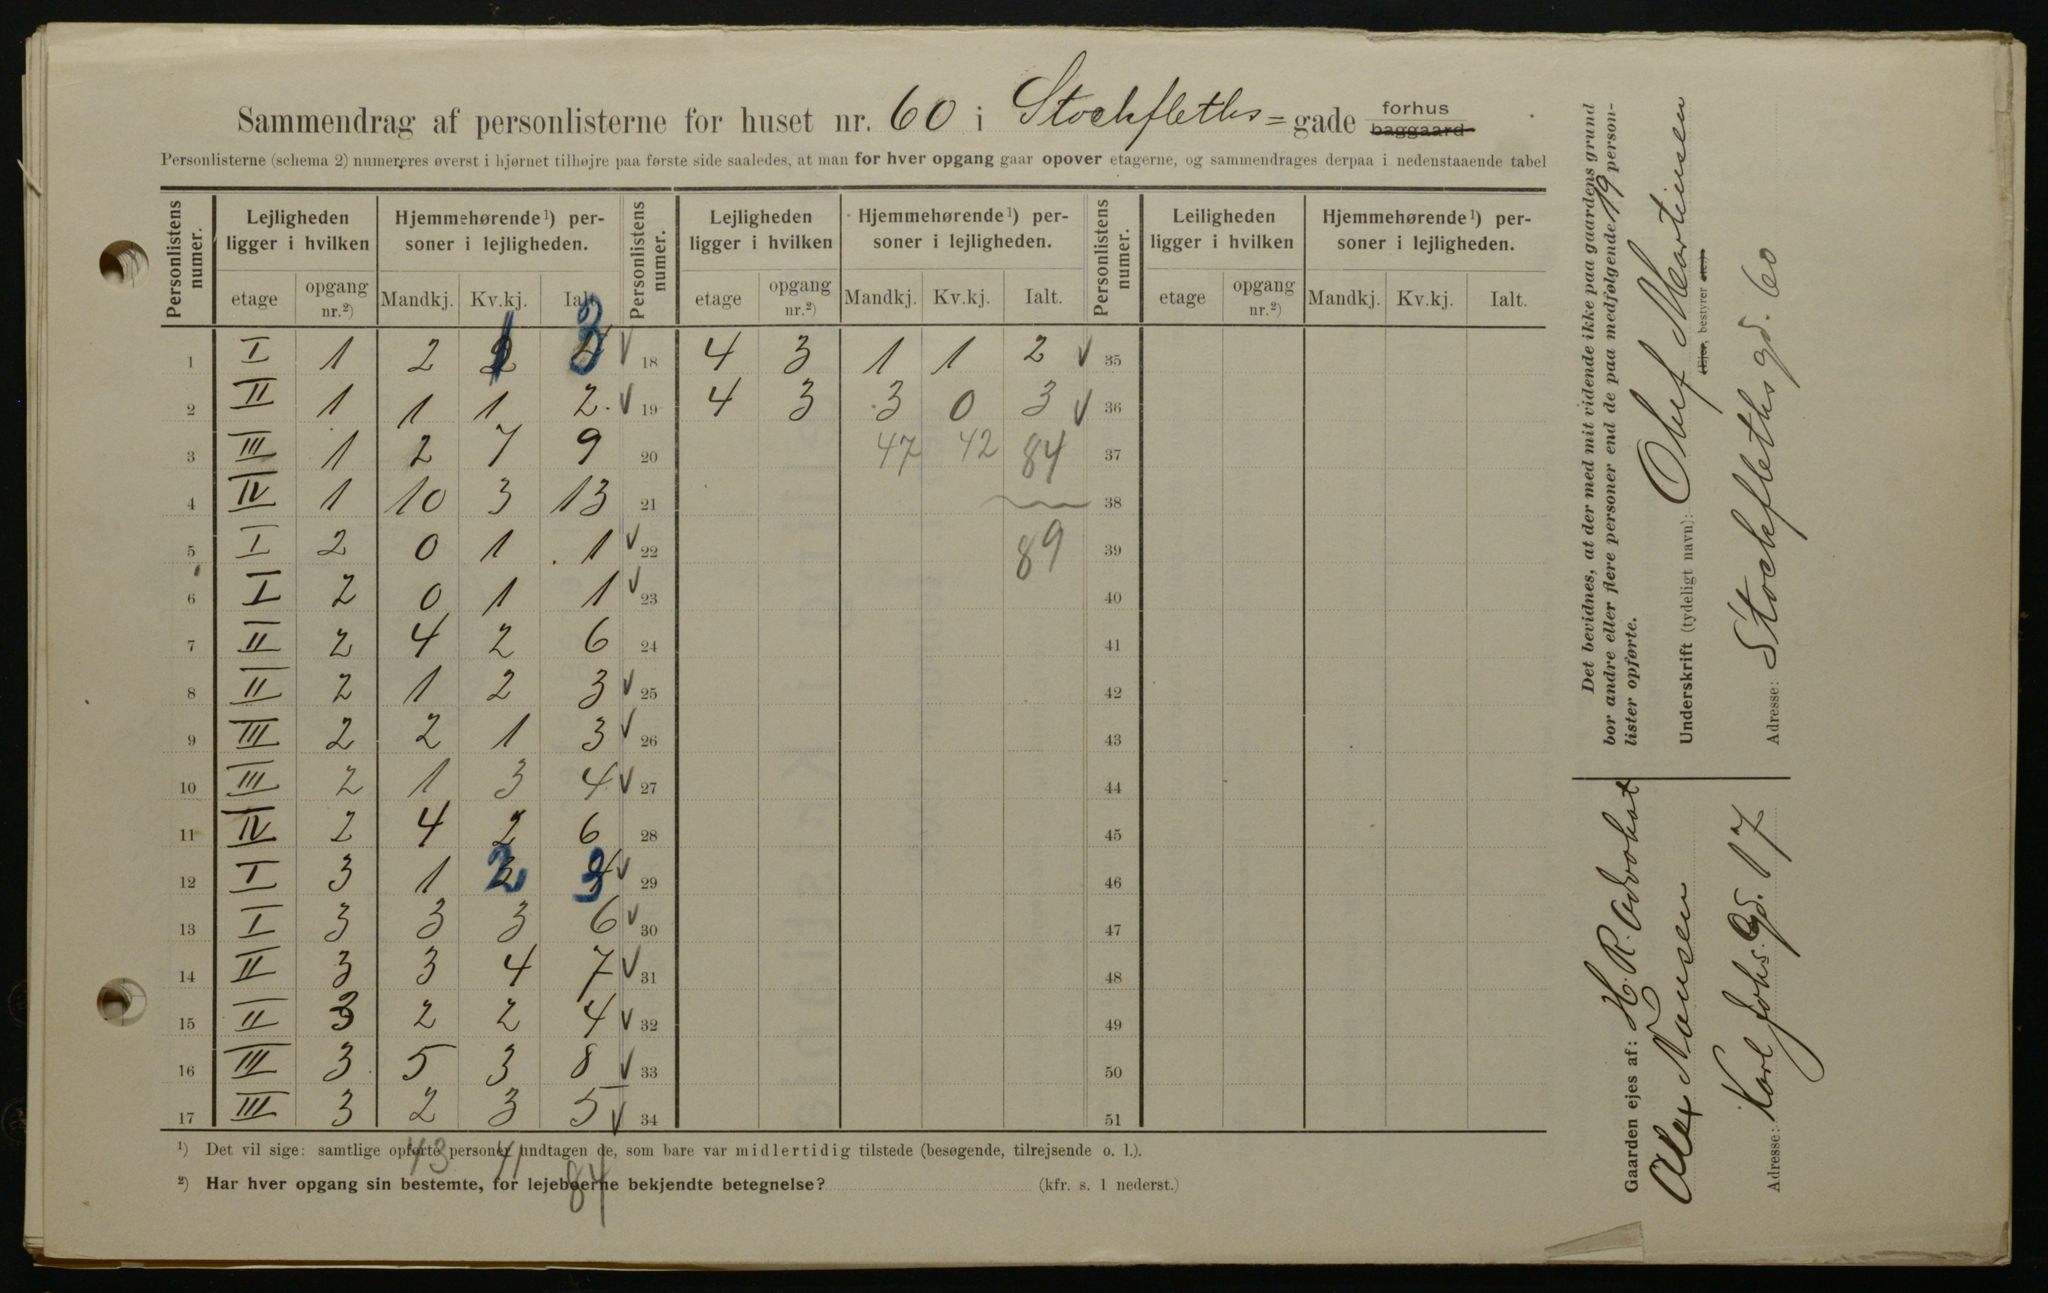 Sammendrag af personlisterne for huset nr. 60 i Stockfleths=gade forhus baggaard
Personlisterne (schema 2) numereres øverst i hjørnet tilhøjre paa første side saaledes, at man for hver opgang gaar opover etagerne, og sammendrages derpaa i nedenstaaende tabel
Personlistens numer. Lejligheden ligger i hvilken Hjemmehørende¹) personer i lejligheden. Personlistens numer. Lejligheden ligger i hvilken Hjemmehørende¹) personer i lejligheden. Personlistens numer. Leiligheden ligger i hvilken Hjemmehørende¹) personer i lejligheden.
etage opgang nr.²) Mandkj. Kv.kj. Ialt. etage opgang nr.²) Mandkj. Kv.kj. Ialt. etage opgang nr.²) Mandkj. Kv.kj. Ialt.
1 I 1 2 2 1 4 3 ✓ 18 4 3 1 1 2 ✓ 35
2 II 1 1 1 2. ✓ 19 4 3 3 0 3 ✓ 36
3 III 1 2 7 9 20 47 42 84 37
4 IV 1 10 3 13 21 38
5 I 2 0 1 1 ✓ 22 89 39
6 I 2 0 1 1 ✓ 23 40
7 II 2 4 2 6 24 41
8 II 2 1 2 3 ✓ 25 42
9 III 2 2 1 3 ✓ 26 43
10 III 2 1 3 4 ✓ 27 44
11 IV 2 4 2 6 28 45
12 I 3 1 3 2 4 3 ✓ 29 46
13 I 3 3 3 6 ✓ 30 47
14 II 3 3 4 7 ✓ 31 48
15 II 3 2 2 4 ✓ 32 49
16 III 3 5 3 8 ✓ 33 50
17 III 3 2 3 5 ✓ 34 51
43 41
84
¹) Det vil sige: samtlige opførte personer undtagen de, som bare var midlertidig tilstede (besøgende, tilrejsende o. l.).
²) Har hver opgang sin bestemte, for lejeboerne bekjendte betegnelse? (kfr. s. 1 nederst.)
Det bevidnes, at der med mit vidende ikke paa gaardens grund
bor andre eller flere personer end de paa medfølgende 19 person-
lister opførte.
Underskrift (tydeligt navn): Oluf Martinsen
(Ejer, bestyrer etc.)
Adresse: Stockfleths gd. 60
Gaarden ejes af: H. R. Advokat
Alex Nansen
Adresse: Karl Johs. gd. 17